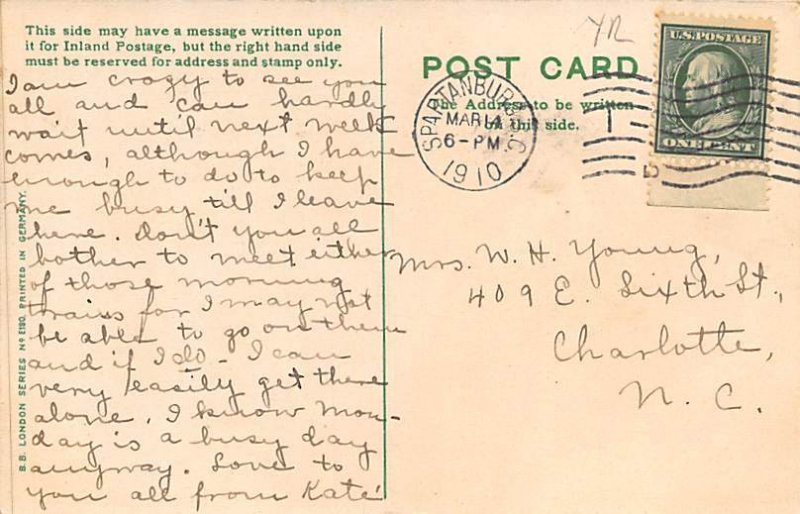 This side may have a message written upon
it for Inland Postage, but the right hand side
must be reserved for address and stamp only.
I am crazy to see you
all and can hardly
wait until next week
comes, although I have
enough to do to keep
me busy till I leave
here. Don't you all
bother to meet either
of those morning
trains for I may not
be able to go on them
and if I do - I can
very easily get there
alone. I know Mon-
day is a busy day
anyway. Love to
you all from Kate
B.B. LONDON SERIES No E180. PRINTED IN GERMANY.
YR
POST CARD
The Address to be written
on this side.
SPARTANBURG S.C.
MAR 14
6-PM
1910
U.S. POSTAGE
ONE CENT
Mrs. W. H. Young,
409 E. Sixth St.,
Charlotte,
N. C.